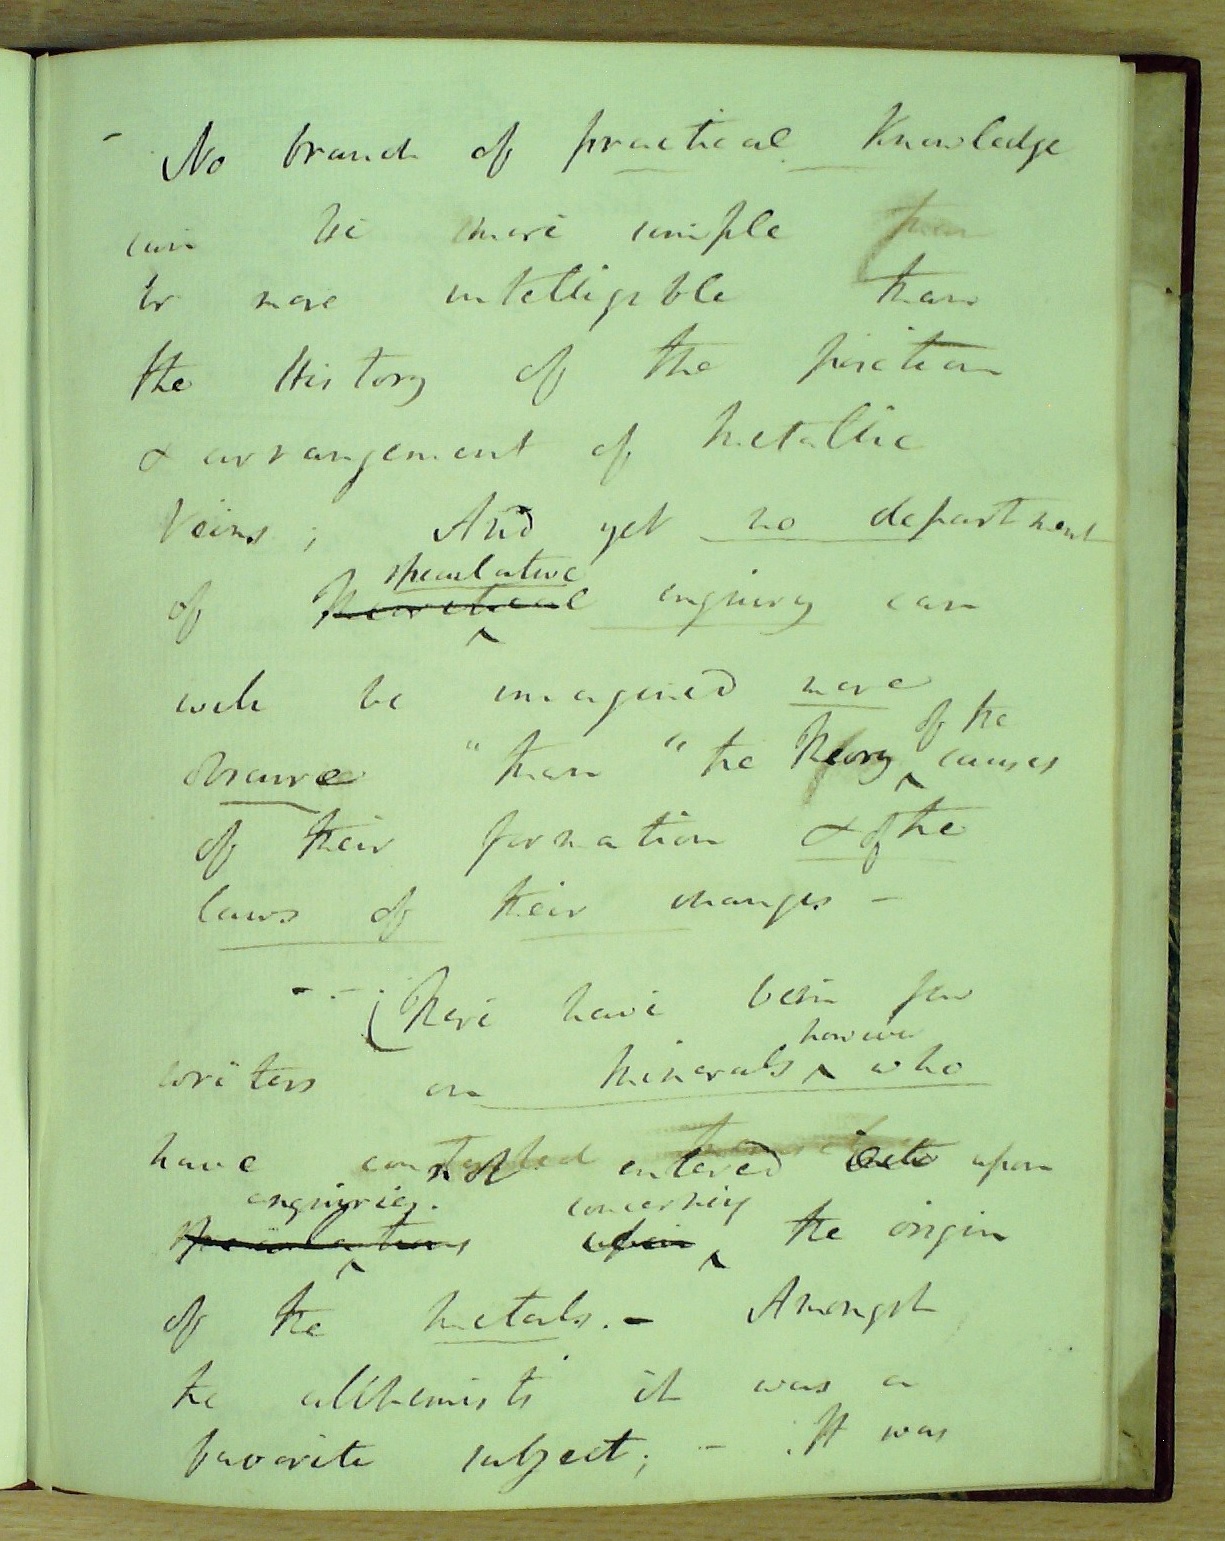 - No branch of practical Knowledge
can be more simple than
or more intelligible than
the History of the position
& arrangement of metallic
Veins; And yet no department
speculative
of theoretical enquiry can
well be imagined more
of the
obscure "than "the theory causes
of their formation & of the
laws of their changes -
- - (There have been few
however
writers on Minerals who
have not entered into upon
enquiries. concerning
speculations upon the origin
of the metals. - Amongst
the alchemists it was a
favorite subject; - It was